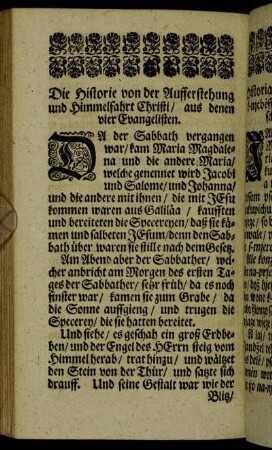 Die Historie von der Aufferstehung
und Himmelfahrt Christi/ aus denen
vier Evangelisten.
DA der Sabbath vergangen
war/ kam Maria Magdale-
na und die andere Maria/
welche genennet wird Jacobi
und Salome/ und Johanna/
und die andere mit ihnen/ die mit JEsu
kommen waren aus Galiläa/ kaufften
und bereiteten die Specereyen/ daß sie kä-
men und salbeten JEsum/ denn den Sab-
bath über waren sie stille nach dem Gesetz.
Am Abend aber der Sabbather/ wel-
cher anbricht am Morgen des ersten Ta-
ges der Sabbather/ sehr früh/ da es noch
finster war/ kamen sie zum Grabe/ da
die Sonne auffgieng/ und trugen die
Specerey/ die sie hatten bereitet.
Und siehe/ es geschah ein groß Erdbe-
ben/ und der Engel des HErrn stieg vom
Himmel herab/ trat hinzu/ und wältzet
den Stein von der Thür/ und satzte sich
drauff. Und seine Gestalt war wie der
Blitz/